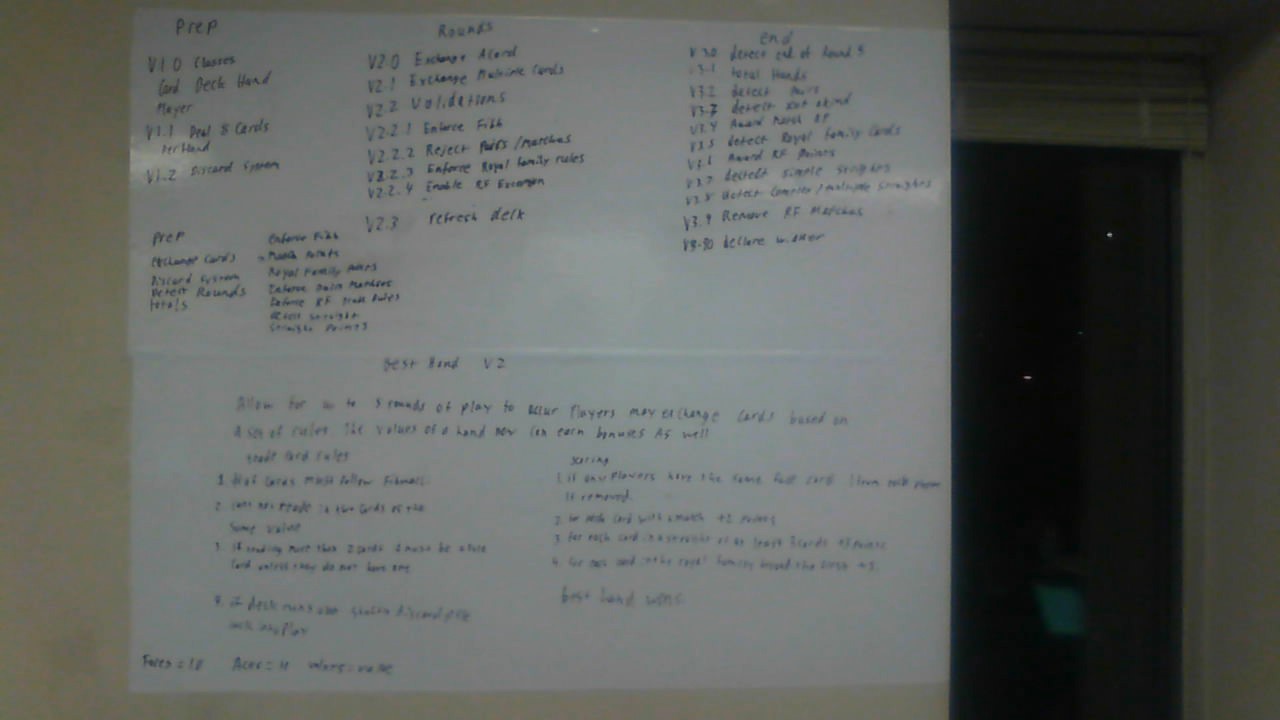 Prep
V1.0 Classes
Card Deck Hand
Player
V1.1 Deal 8 Cards
Per Hand
V1.2 Discard System
Rounds
V2.0 Exchange A card
V2.1 Exchange Multiple Cards
V2.2 Validations
V2.2.1 Enforce Fibb
V2.2.2 Reject Pairs/Matches
V2.2.3 Enforce Royal family rules
V2.2.4 Enable RF
V2.3 refresh deck
End
V3.0 detect end of Round 5
V3.1 total Hands
V3.2 detect Pairs
V3.3 detect
V3.4 Award Match
V3.5 detect Royal Family Cards
V3.6 Award RF Points
V3.7 detect simple
V3.8 detect Complex/multiple
V3.9 Remove RF Matches
declare winner
Prep
Exchange Cards
Discard System
Detect Rounds
totals
Enforce Fibb
Match Points
Royal Family Points
Enforce Matches
Enforce RF Rules
detect straight
Straight Points
Best Hand V2
Allow for up to 5 rounds of play to occur Players may exchange cards based on
A set of rules. The values of a hand now can earn bonuses As well
trade card rules
1. # of Cards must follow
2. two cards of the
Same value
3. If trading more than 2 cards 1 must be a face
Card unless they do not have one
4. if deck runs out discard pile
Scoring
1. if any Players have the same face card 1 from each player
is removed.
2. for each card with a match +2 Points
3. for each card in a straight of at least 3 cards Points
4. for each card in the royal family the first +5.
best hand wins.
Faces = 10 Aces = 11 value